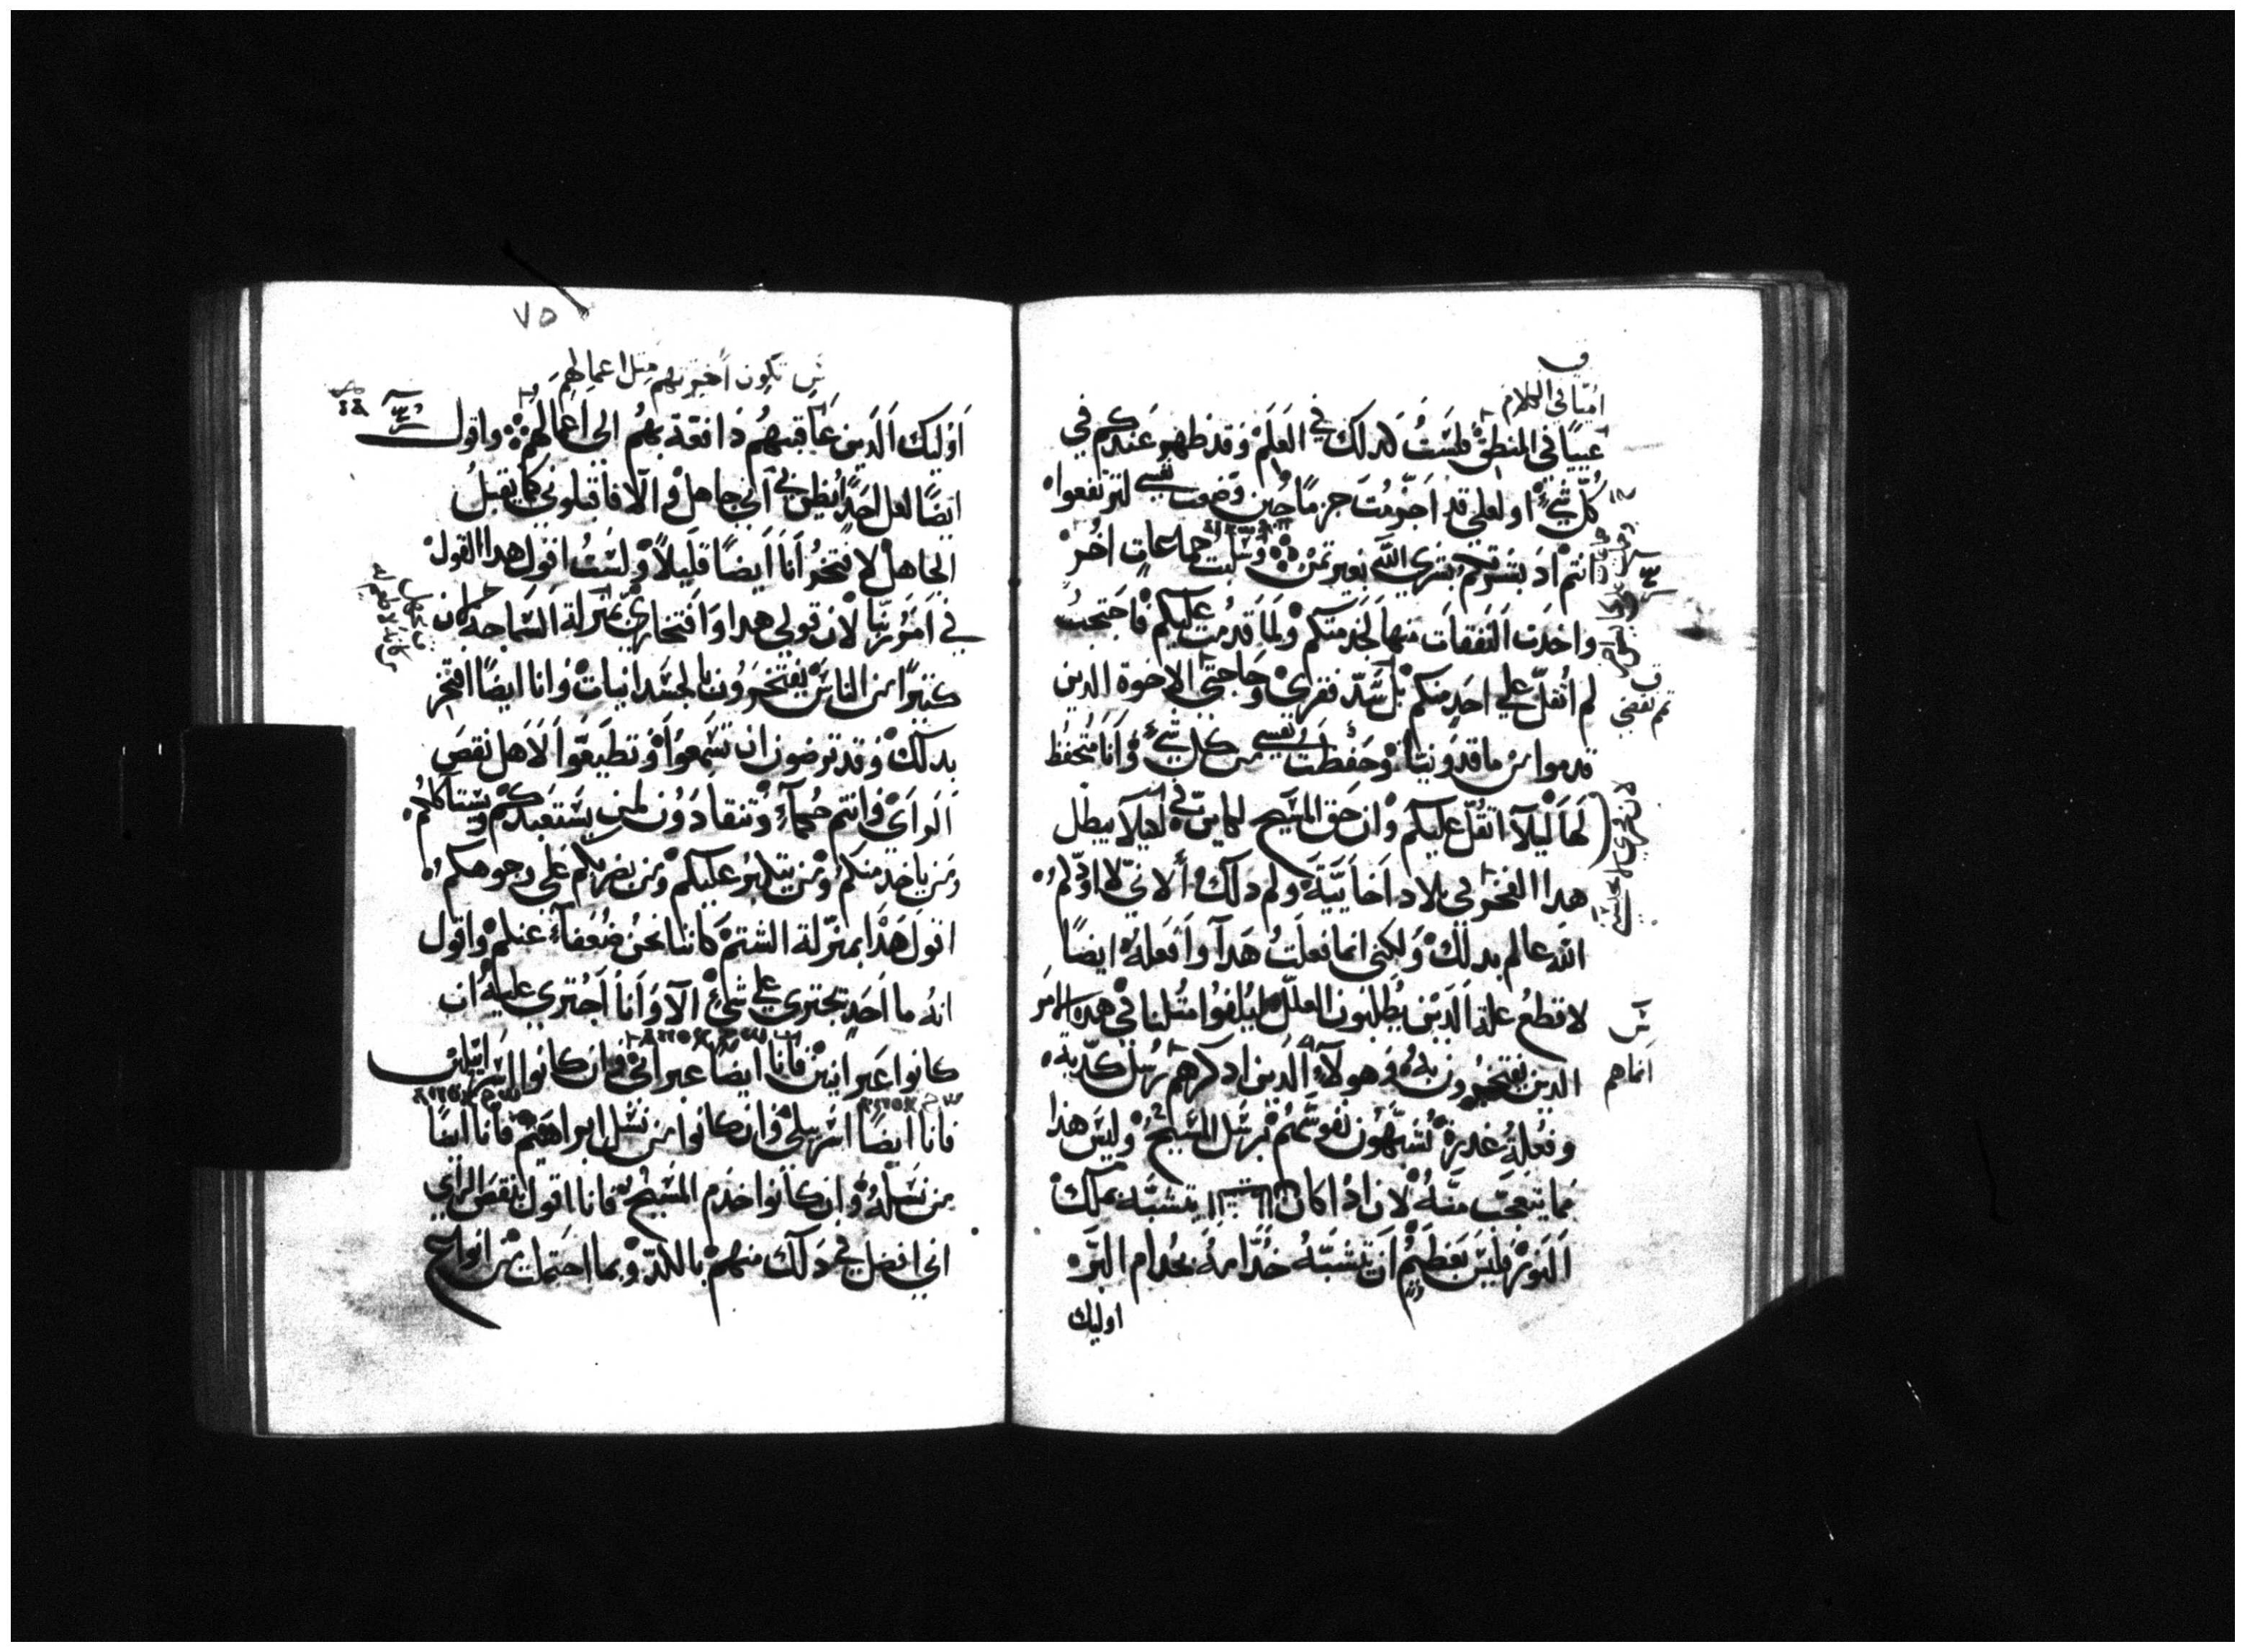 اميا في الكلام
عييا في المنطق فلست كدلك في العلم وقد ظهر عندكم في
كل شي او لعلي قد اجرمت جرما حين وضعت نفسي لترتفعوا
انتم اد بشرتكم بشري الله بغير تمن وسلبت جماعات اخر
واخدت النفقات منها لخدمتكم ولما قدمت عليكم فاحتجت
لم اثقل علي احد منكم بل سد فقري وحاجتي الاخوة الدين
قدموا من ماقدونيا وحفظت نفسي من كل شي وانا متحفظ
لها ليلا اتقل عليكم وان حق المسيح لكاين في ليلا يبطل
هدا الفخر في بلاد اخاييه ولم دلك الاني لا اودكم
الله عالم بدلك ولكني انما فعلت هدا وافعله ايضا
لاقطع علة الدين يطلبون العلل ليلفوا متلنا في هده الامر
الدين يفتخرون به وهولاء الدين ادكرهم رسل كدبه
وفعلة غدرة تشبهون نفوسهم برسل المسيح وليس هذا
مما يتعجب منه لان ادا كان يتشبه بملك
النور فليس بعظيم ان يتشبه خدامه بخدام البر
اوليك
لم تنقص
س
انماهم
٧٥
س تكون اخرتهم متل اعمالهم
اوليك الدين عاقبتهم دافعة بهم الى اعمالهم واقول
ايضا لعل احدا يظن بي اني جاهل والا فاقبلوني كما تقبل
الجاهل لافتخر انا ايضا قليلا ولست اقول هدا القول
في امر ربنا لان قولي هدا وافتخاري بمنزلة السماجه لان
كتيرا من الناس يفتخرون بالجسدانيات وانا ايضا افتخر
بدلك وقد ترضون ان تسمعوا وتطيعوا لاهل نقص
الراي وانتم حكماء وتنقادون لمن يستعبدكم ويستاكلكم
ومن ياخد منكم ومن يتكبر عليكم ومن يضربكم على وجوهكم
اقول هدا بمنزلة الشتم كاننا نحن ضعفاء عندكم واقول
انه ما احد يجتري علي شي الا وانا اجتري عليه ان
كانوا عبرانيين فانا ايضا عبراني وان كانوا اسراييلين
فانا ايضا اسراييلي وان كانوا من نسل ابراهيم فانا ايضا
من نسله وان كانوا خدم المسيح فانا اقول بنقص الراي
اني افضل في دلك منهم بالكد وبما احتملت من انواع